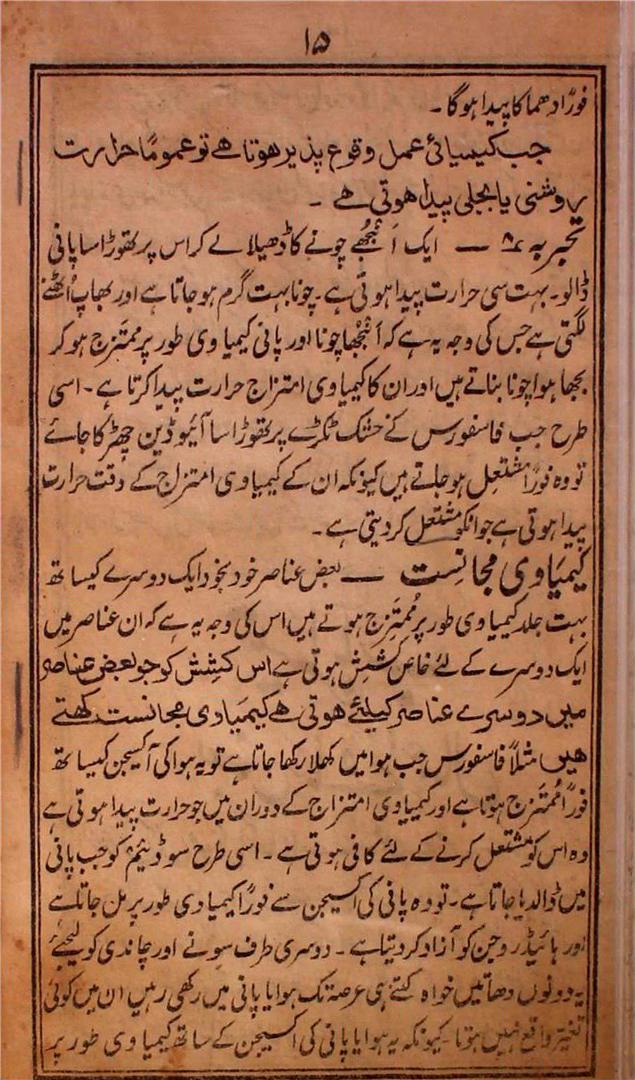 ۱۵
فوراً دھماکا پیدا ہوگا۔
جب کیمیائی عمل وقوع پذیر ہوتا ہے تو عموماً حرارت
روشنی یا بجلی پیدا ہوتی ہے ۔
تجربہ ۸ — ایک اَنبُجھے چونے کا ڈھیلا لے کر اس پر تھوڑا سا پانی
ڈالو۔ بہت سی حرارت پیدا ہوتی ہے۔ چونا بہت گرم ہو جاتا ہے اور بھاپ اُٹھنے
لگتی ہے جس کی وجہ یہ ہے کہ اَنبُجھا چونا اور پانی کیمیاوی طور پر ممتزج ہو کر
بجھا ہوا چونا بناتے ہیں اور ان کا کیمیاوی امتزاج حرارت پیدا کرتا ہے۔ اسی
طرح جب فاسفورس کے خشک ٹکڑے پر تھوڑا سا آئیوڈین چھڑکا جائے
تو وہ فوراً مشتعل ہو جاتے ہیں کیونکہ ان کے کیمیاوی امتزاج کے وقت حرارت
پیدا ہوتی ہے جو انکو مشتعل کر دیتی ہے۔
کیمیاوی مجانست — بعض عناصر خود بخود ایک دوسرے کیساتھ
بہت جلد کیمیاوی طور پر مُمتزج ہوتے ہیں اس کی وجہ یہ ہے کہ ان عناصر میں
ایک دوسرے کے لئے خاص کشش ہوتی ہے اس کشش کو جو بعض عناصر
میں دوسرے عناصر کیلئے ہوتی ہے کیمیاوی مجانست کہتے
ہیں مثلاً فاسفورس جب ہوا میں کھلا رکھا جاتا ہے تو یہ ہوا کی آکسیجن کیساتھ
فوراً مُمتزج ہوتا ہے اور کیمیاوی امتزاج کے دوران میں جو حرارت پیدا ہوتی ہے
وہ اس کو مشتعل کرنے کے لئے کافی ہوتی ہے۔ اسی طرح سوڈیئم کو جب پانی
میں ڈالدیا جاتا ہے۔ تو وہ پانی کی آکسیجن سے فوراً کیمیاوی طور پر مل جاتا ہے
اور ہائیڈروجن کو آزاد کر دیتا ہے۔ دوسری طرف سونے اور چاندی کو لیجئے
یہ دونوں دھاتیں خواہ کتنے ہی عرصہ تک ہوا یا پانی میں رکھی رہیں ان میں کوئی
تغیر واقع نہیں ہوتا۔ کیونکہ یہ ہوا یا پانی کی آکسیجن کے ساتھ کیمیاوی طور پر